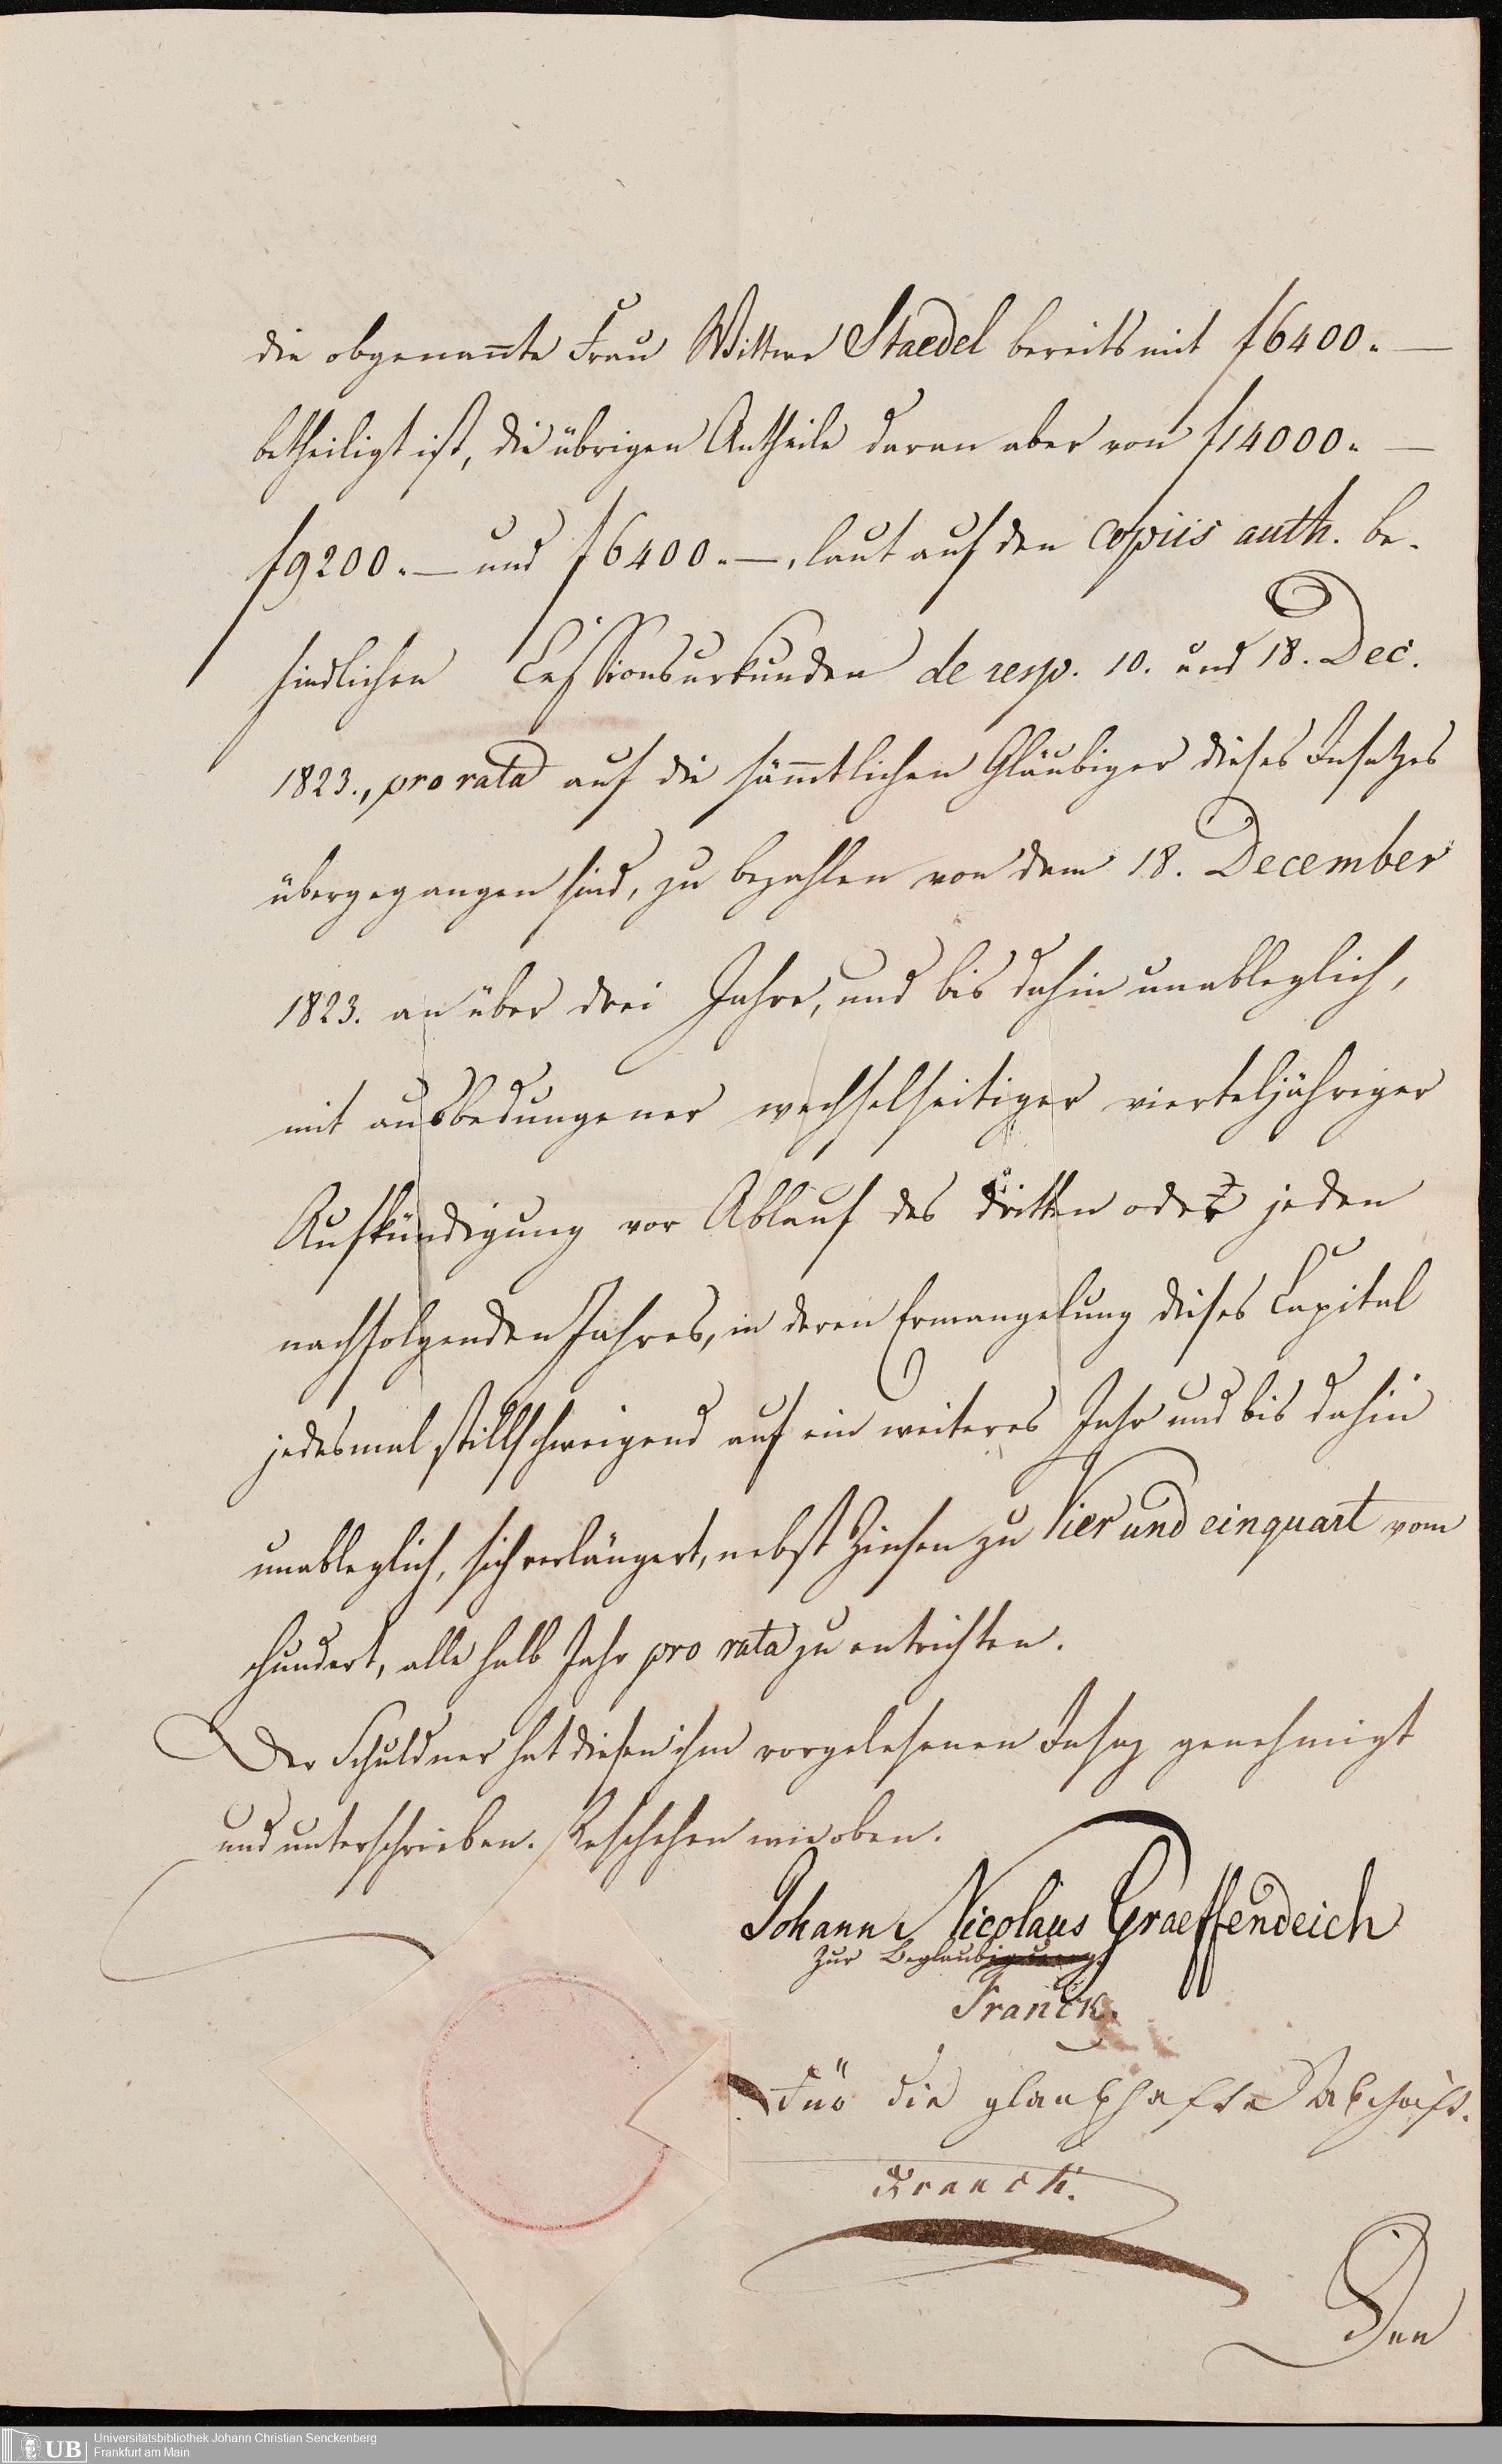 die obgenannte Frau Wittwe Staedel bereits mit f 6400. —
betheiligt ist, die übrigen Antheile daran aber von f 14000. —
f 9200. — und f 6400. —, laut auf den copiis auth. be-
findlichen Cessionsurkunden de resp. 10. und 18. Dec.
1823., pro rata auf die sämmtlichen Gläubiger dieses Insatzes
übergegangen sind, zu bezahlen von dem 18. December
1823. an über drei Jahre, und bis dahin unableglich,
mit ausbedungener wechselseitiger vierteljähriger
Aufkündigung vor Ablauf des dritten oder jeden
nachfolgenden Jahres, in deren Ermangelung dieses Capital
jedesmal stillschweigend auf ein weiteres Jahr und bis dahin
unableglich, sich verlängert, nebst Zinsen zu Vier und einquart vom
hundert, alle halb Jahr pro rata zu entrichten.
Der Schuldner hat diesen ihm vorgelesenen Insaz genehmigt
und unterschrieben. Geschehen wie oben.
Johann Nicolaus Graeffendeich
Zur Beglaubigung.
Franck.
Für die glaubhafte Abschrift.
Franck.
Den
UB Universitätsbibliothek Johann Christian Senckenberg
Frankfurt am Main